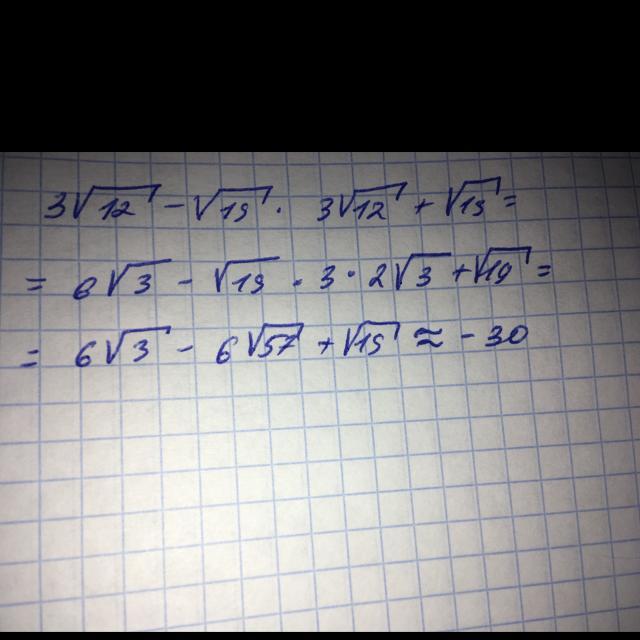 3√12 - √19 · 3√12 + √19 =
= 6√3 - √19 · 3 · 2√3 + √19 =
= 6√3 - 6√57 + √19 ≈ -30